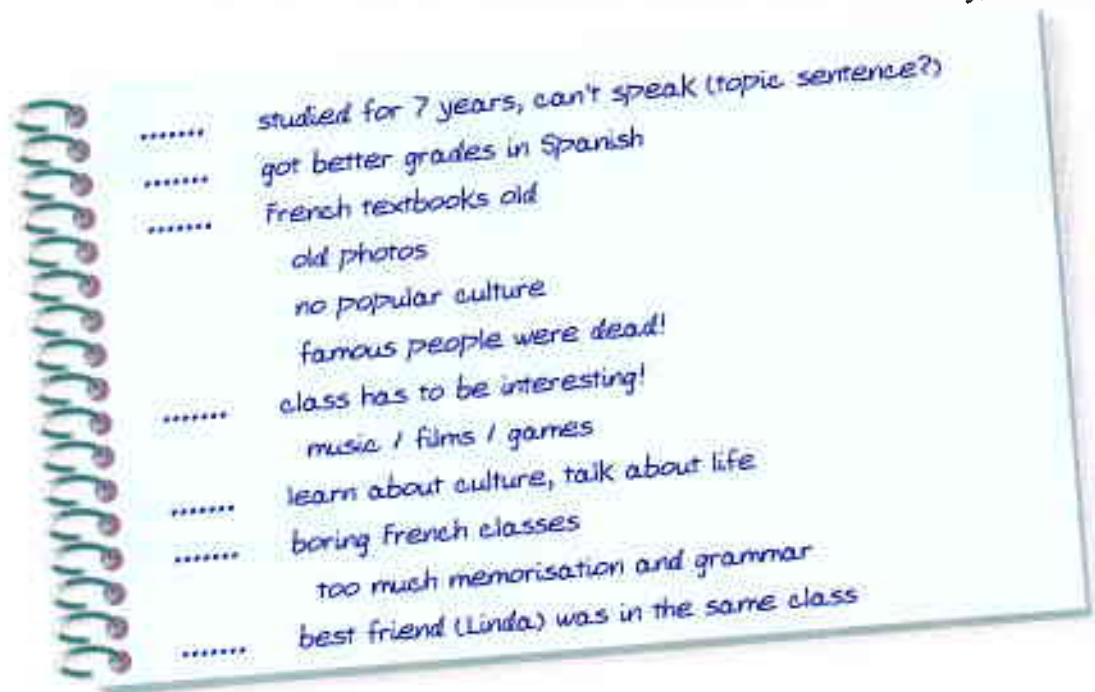 ....... studied for 7 years, can't speak (topic sentence?)
....... got better grades in Spanish
....... French textbooks old
old photos
no popular culture
famous people were dead!
....... class has to be interesting!
music / films / games
....... learn about culture, talk about life
....... boring French classes
too much memorisation and grammar
....... best friend (Linda) was in the same class